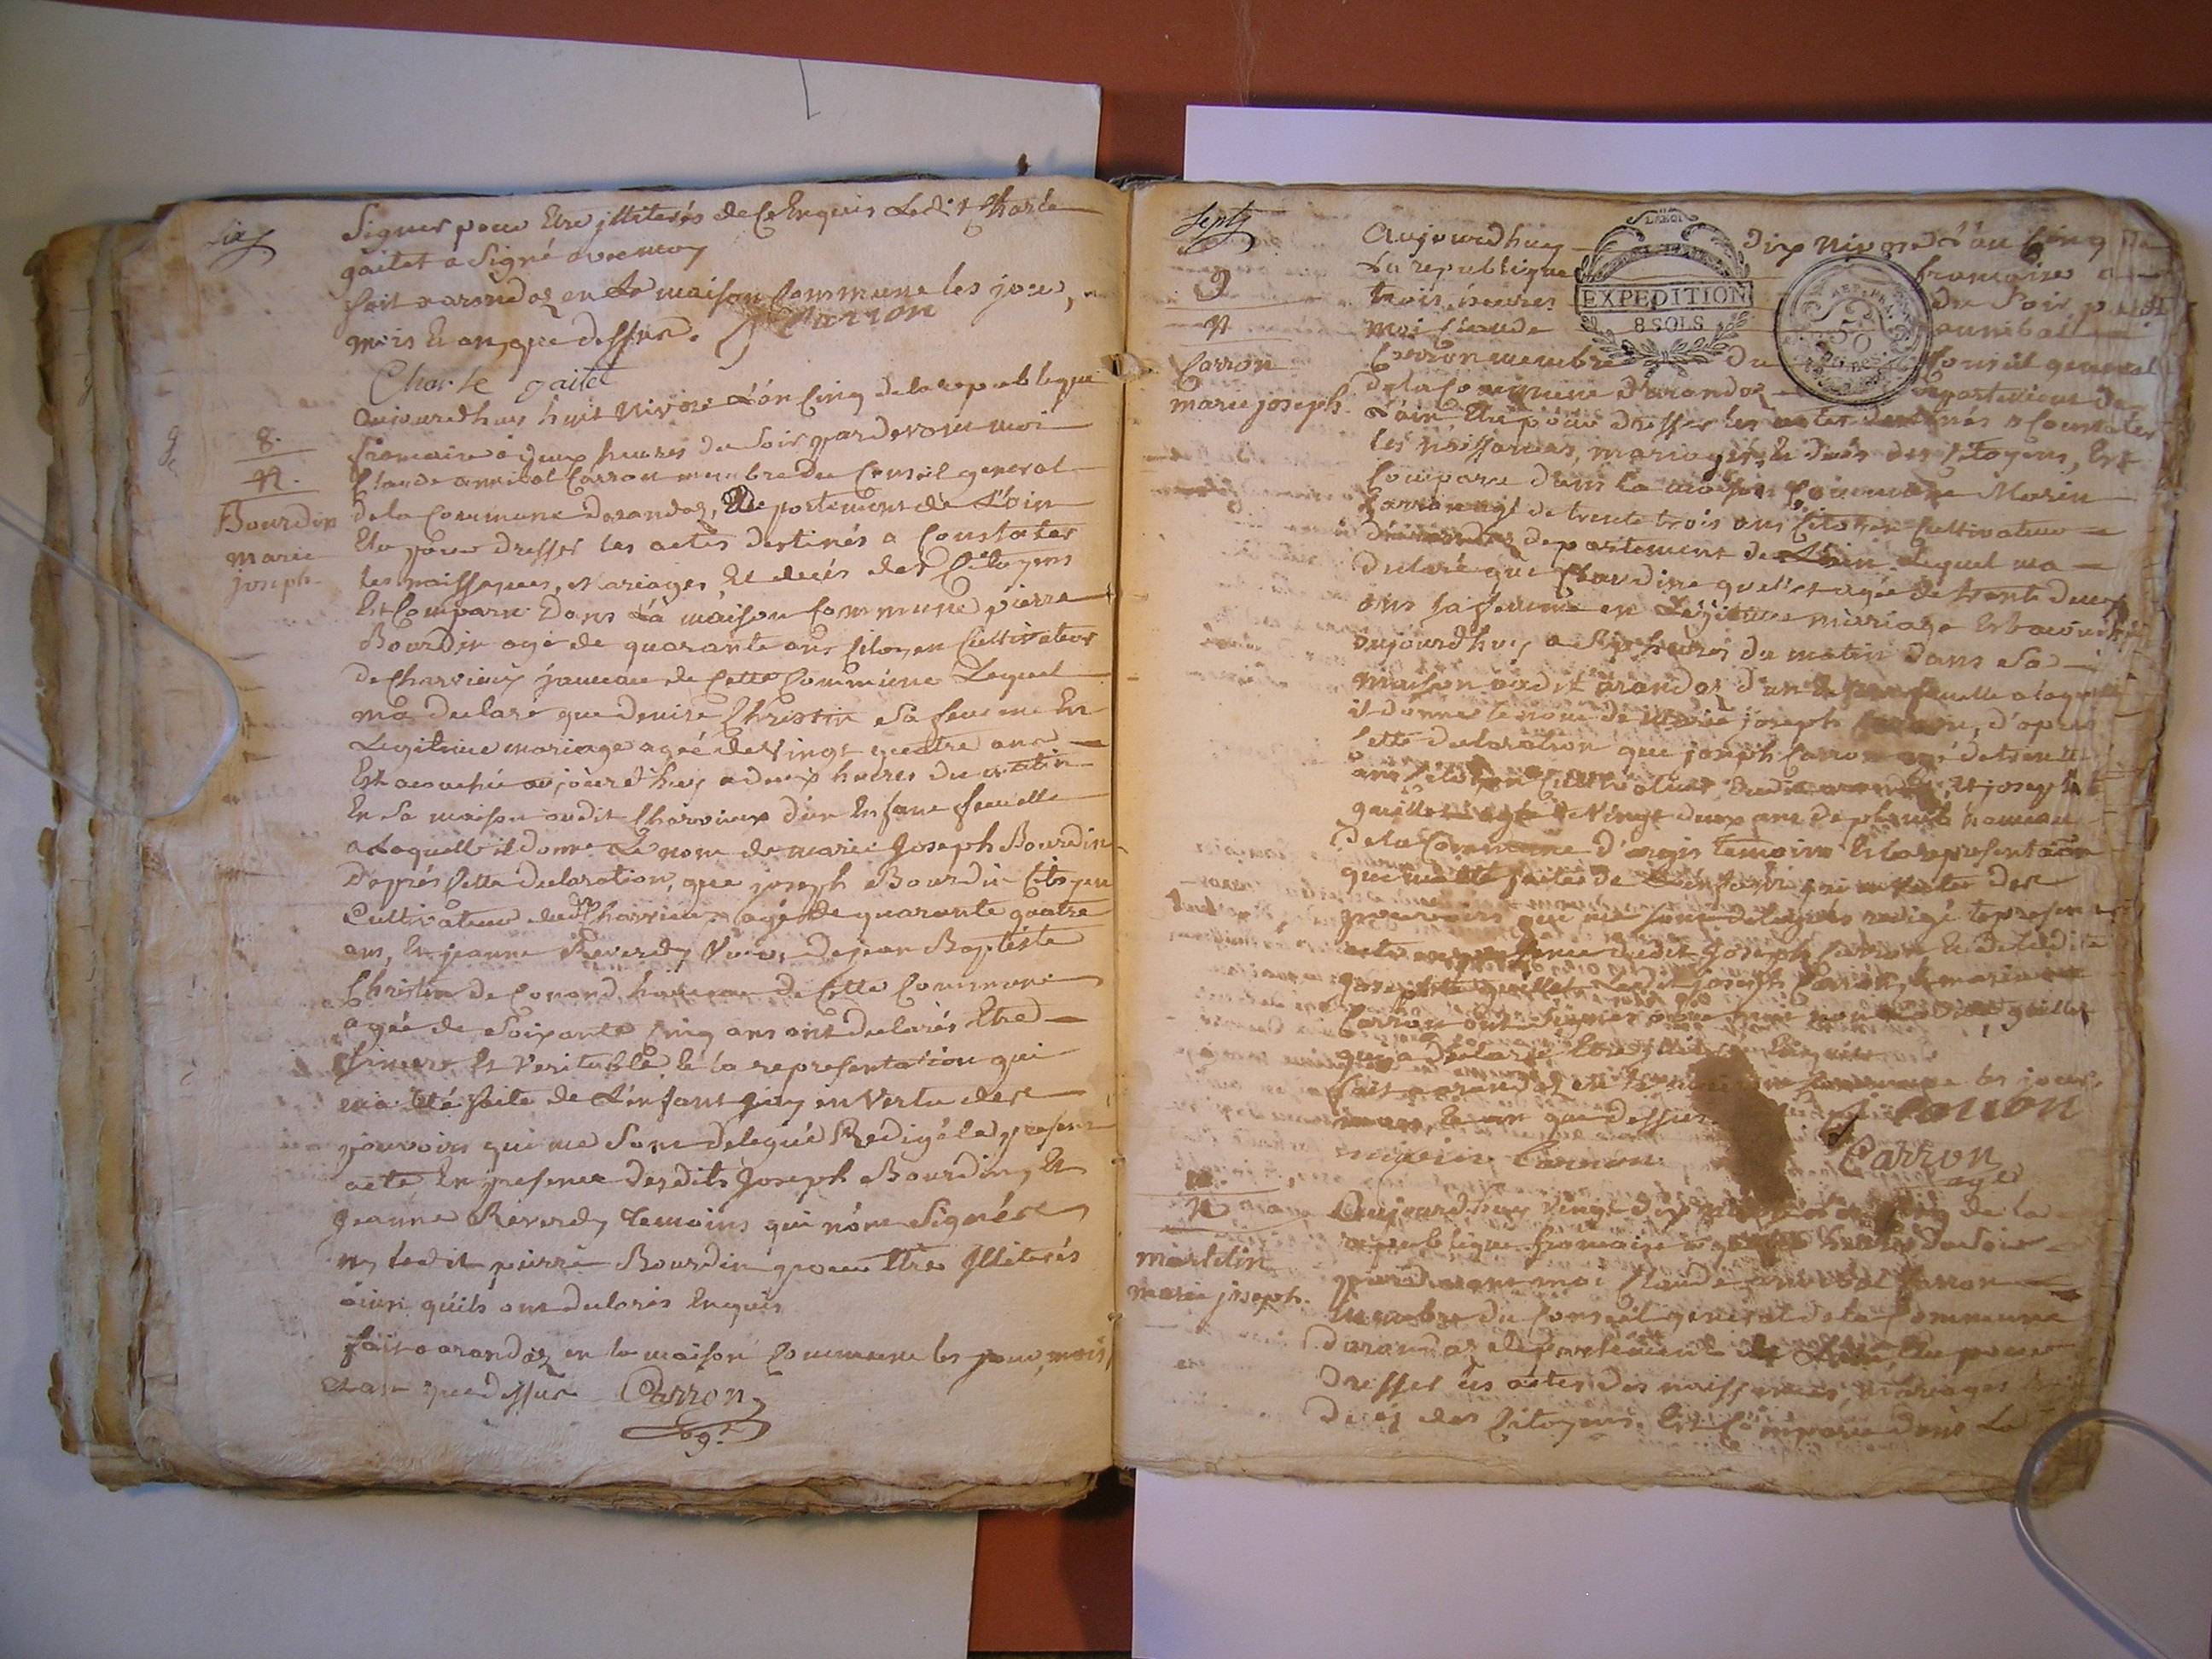 six
Signer pour Etre illiterés de Ce Enquis Ledit Charle
gaitet a Signé avec moy
fait a arandas en La maison Commune les jour,
mois Et an, que dessus. Carron
Charle gaitet
8.
N.
Bourdin
marie
joseph
aujourdhuy huit Nivose L'an Cinq de la republique
francaise a deux heures du Soir pardevant moi
Claude annibal Carron membre du Conseil general
de la Commune darandas, Departement de L'ain
Elu pour dresser les actes destinés a Constater
les naissances, Mariages, Et decés des Citoyens
Est Comparu Dans La maison Commune pierre
Bourdin agé de quarante ans Citoyen Cultivateur
de Charvieux hameau de Cette Commune Lequel
m'a declaré que denise Christin Sa femme En
Legitime mariage agée de Vingt quatre ans
Est acouchée aujourdhuy a deux heures du matin
En Sa maison audit Charvieux d'un Enfant femelle
a Laquelle il donne Le nom de marie Joseph Bourdin
D'apprés Cette declaration, que joseph Bourdin Citoyen
Cultivateur dud Charvieux agé de quarante quatre
ans, Et jeanne Reverdy Veuve de jean Baptiste
Christin de Conand hameau de Cette Commune
agée de Soixante Cinq ans ont declarés Etre
Sincere Et Veritable Et la representation qui
m'a été faite de L'enfant j'ay en Vertu des
pouvoirs qui me Sont delegué Rédigé le present
acte En presence desdits Joseph Bourdin, Et
Jeanne Reverdy temoins qui n'ont Signés
ny ledit pierre Bourdin pour Etre Illiterés
ainsi qu'ils ont declarés Enquis
fait a arandas en la maison Commune les jour, mois,
Et an que dessus Carron
agt
Sept
9
N
Carron
marie joseph.
EXPEDITION
8 SOLS
REP. FRA.
Aujourdhuy dix Nivose L'an Cinq de
La republique francaise a
trois heures du Soir pardt
moi Claude annibal
Carron membre du Conseil general
de la Commune d'arandas departement de
L'ain Elu pour dresser les actes destinés a Constater
les naissances, mariages, Et decés des Citoyens, Est
Comparu dans La maison Commune Marin
Carron agé de trente trois ans Citoyen Cultivateur
d'arandas departement de L'ain Lequel m'a
declaré que Claudine agée de trente deux
ans Sa femme en Légitime mariage Est acouchée
aujourdhuy a Six heures du matin dans Sa
maison audit arandas d'un Enfant femelle a laquelle
il donne le nom de Marie joseph Carron, d'apres
Cette declaration que joseph Carron agé de trente
ans Citoyen Cultivateur dudit arandas, Et josephte
guillet agée de Vingt deux ans de hameau
De la Commune d'argis temoins Et la representation
qui m'a été faite de L'enfant j'ai en Vertu des
pouvoirs qui me sont delegués redigé le present
acte en presence dudit Joseph Carron Et de ladite
josephte guillet, Ledit joseph Carron, Et marin
Carron ont Signés avec moi non guillet
qui a declaré Etre Enquise
fait a arandas en la maison Commune les jour,
mois, Et an que dessus Carron
marin Carron Carron
agt
10.
N
martelin
marie joseph.
Aujourdhuy Vingt de la
republique francaise a heures du Soir
pardevant moi Claude annibal Carron
membre du Conseil general de la Commune
darandas departement de L'ain, Elu pour
Dresser les actes des naissances, mariages
Decés des Citoyens, Est Comparu dans La